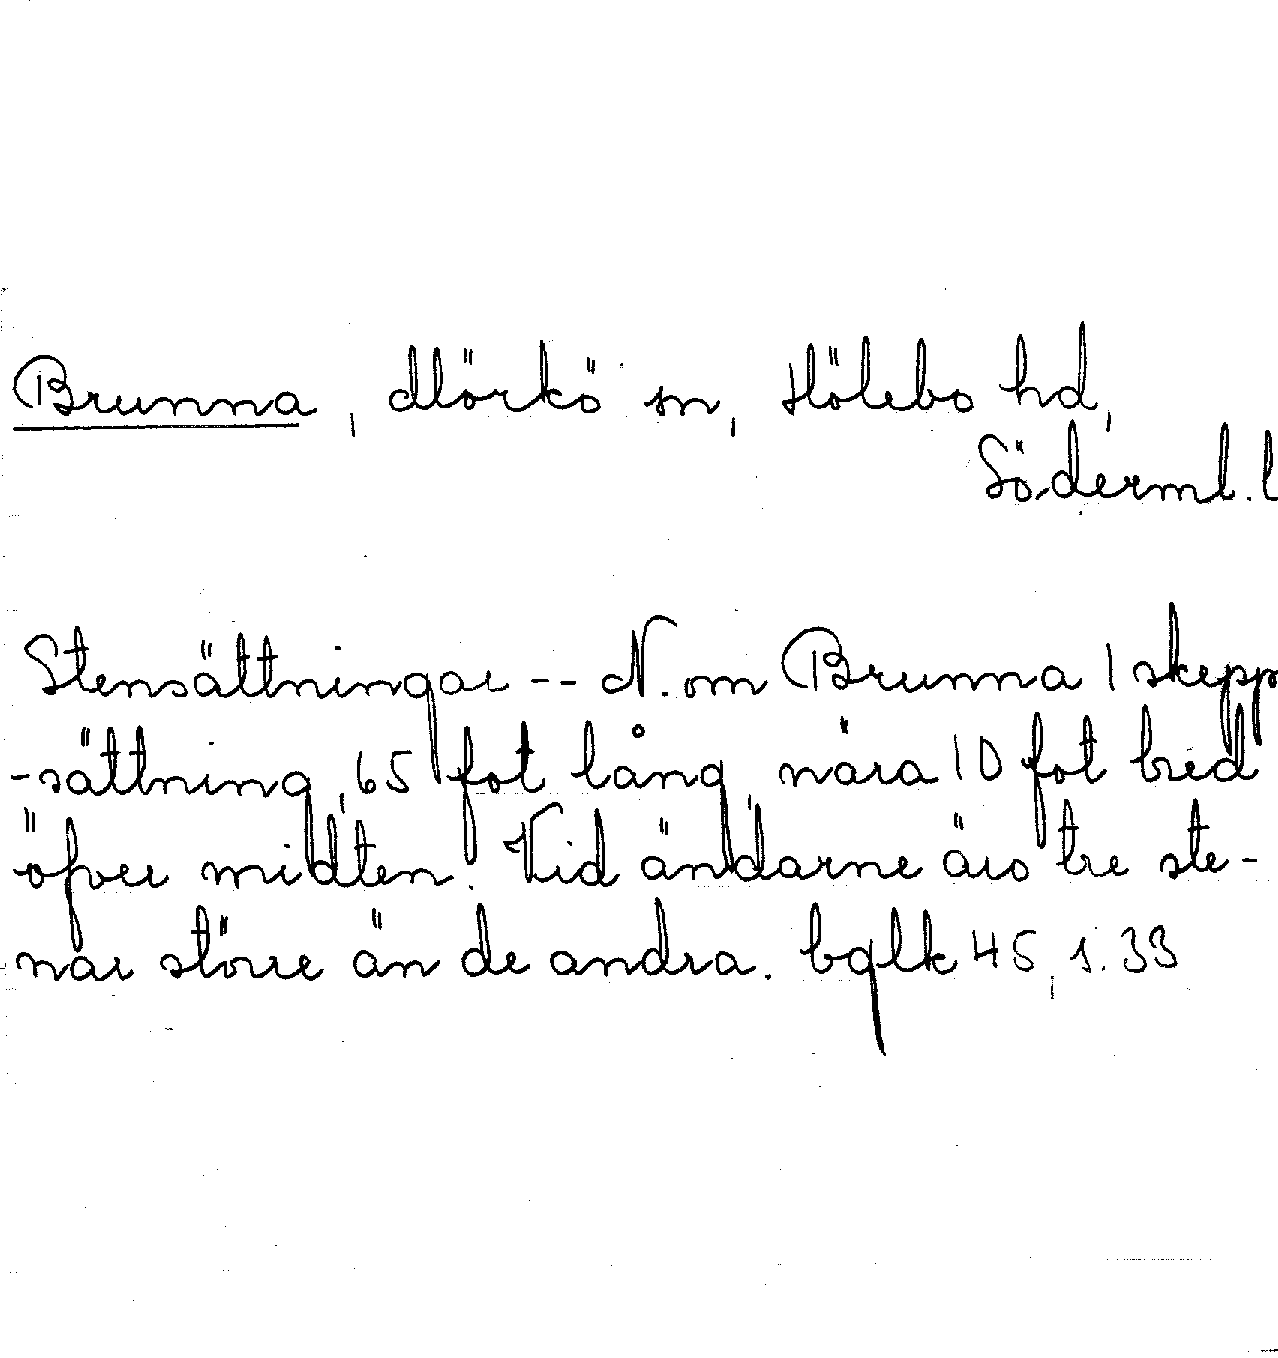 Brunna, Mörkö sn, Hölebo hd,
Söderml. l
Stensättningar -- N. om Brunna 1 skepp
-sättning, 65 fot lång, nära 10 fot bred
öfver midten. Vid ändarne äro tre ste-
nar större än de andra. bglk 45, s. 33